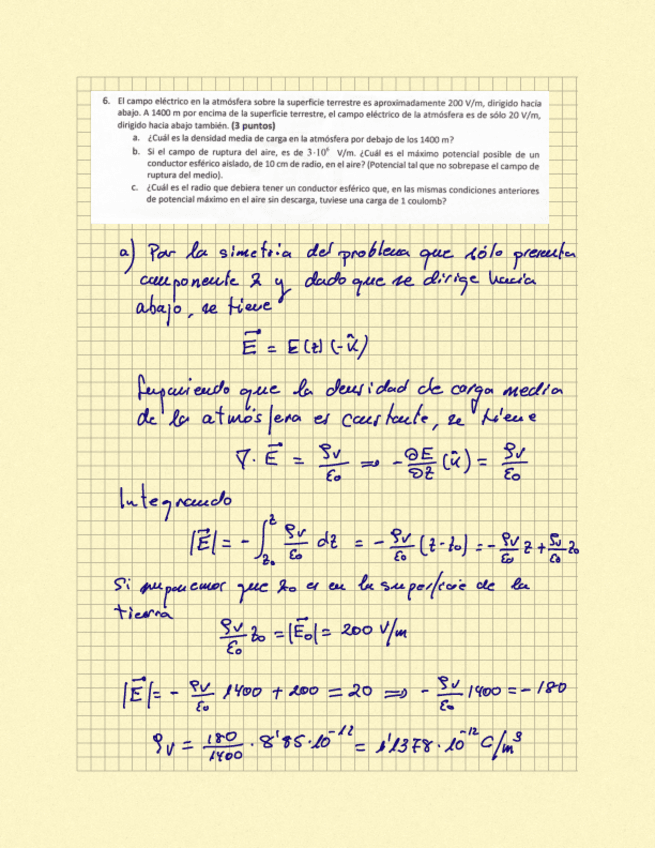 6. El campo eléctrico en la atmósfera sobre la superficie terrestre es aproximadamente 200 V/m, dirigido hacia
abajo. A 1400 m por encima de la superficie terrestre, el campo eléctrico de la atmósfera es de sólo 20 V/m,
dirigido hacia abajo también. (3 puntos)
a. ¿Cuál es la densidad media de carga en la atmósfera por debajo de los 1400 m?
b. Si el campo de ruptura del aire, es de 3·10⁶ V/m. ¿Cuál es el máximo potencial posible de un
conductor esférico aislado, de 10 cm de radio, en el aire? (Potencial tal que no sobrepase el campo de
ruptura del medio).
c. ¿Cuál es el radio que debiera tener un conductor esférico que, en las mismas condiciones anteriores
de potencial máximo en el aire sin descarga, tuviese una carga de 1 coulomb?
a) Por la simetria del problema que sólo presenta
componente z y dado que se dirige hacia
abajo, se tiene
E⃗ = E(z) (-k̂)
Suponiendo que la densidad de carga media
de la atmósfera es constante, se tiene
∇·E⃗ = ρv/ε₀ ⇒ -∂E/∂z (k̂) = ρv/ε₀
Integrando
|E⃗| = -∫_{z₀}^{z} ρv/ε₀ dz = -ρv/ε₀ (z-z₀) = -ρv/ε₀ z + ρv/ε₀ z₀
Si suponemos que z₀ es en la superficie de la
tierra
ρv/ε₀ z₀ = |E⃗₀| = 200 V/m
|E⃗| = - ρv/ε₀ 1400 + 200 = 20 ⇒ - ρv/ε₀ 1400 = -180
ρv = 180/1400 · 8'85·10⁻¹² = 1'1378·10⁻¹² C/m³